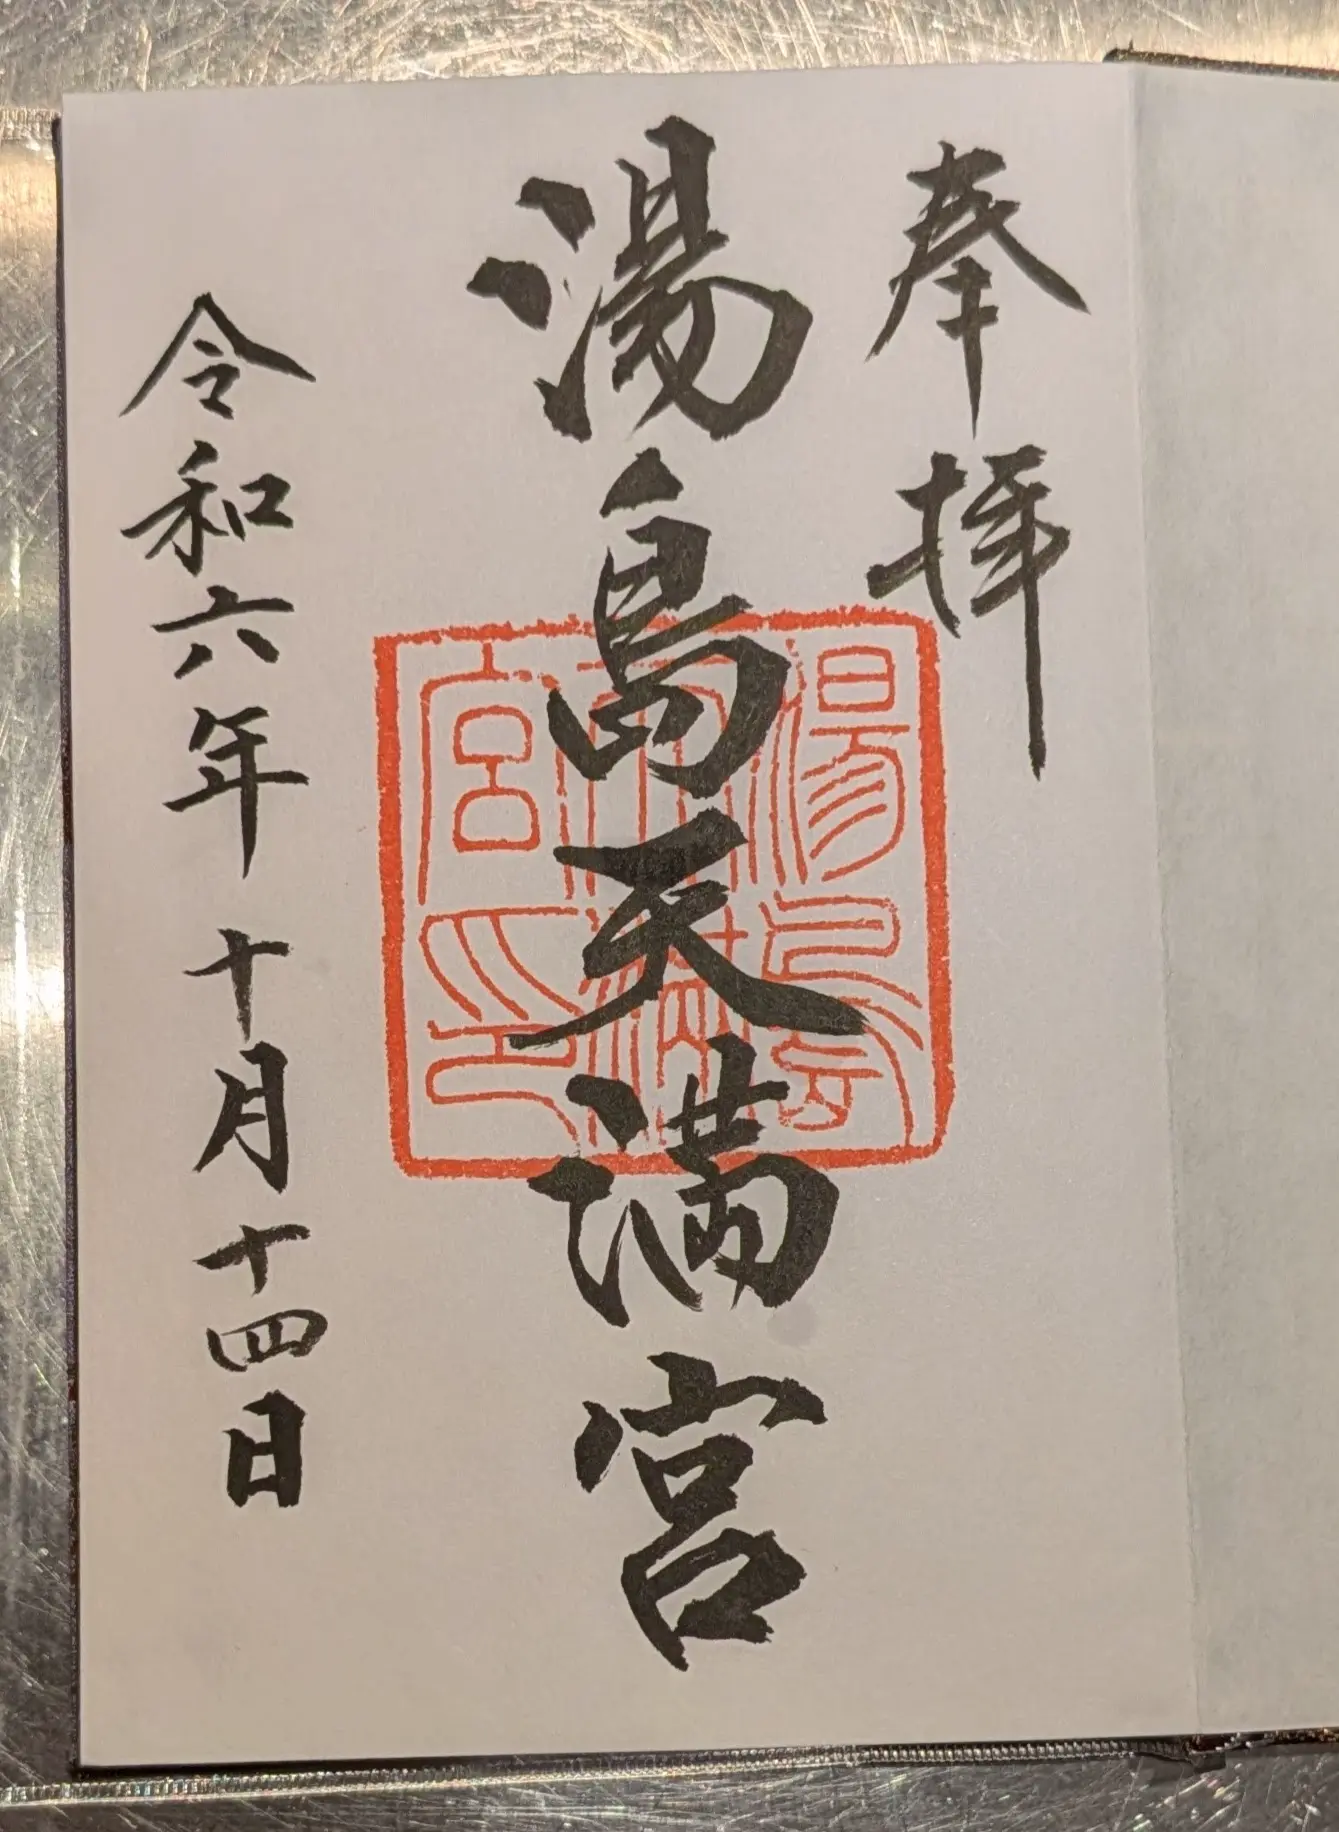 奉拝
湯島天満宮
令和六年十月十四日
湯島
天満
宮印